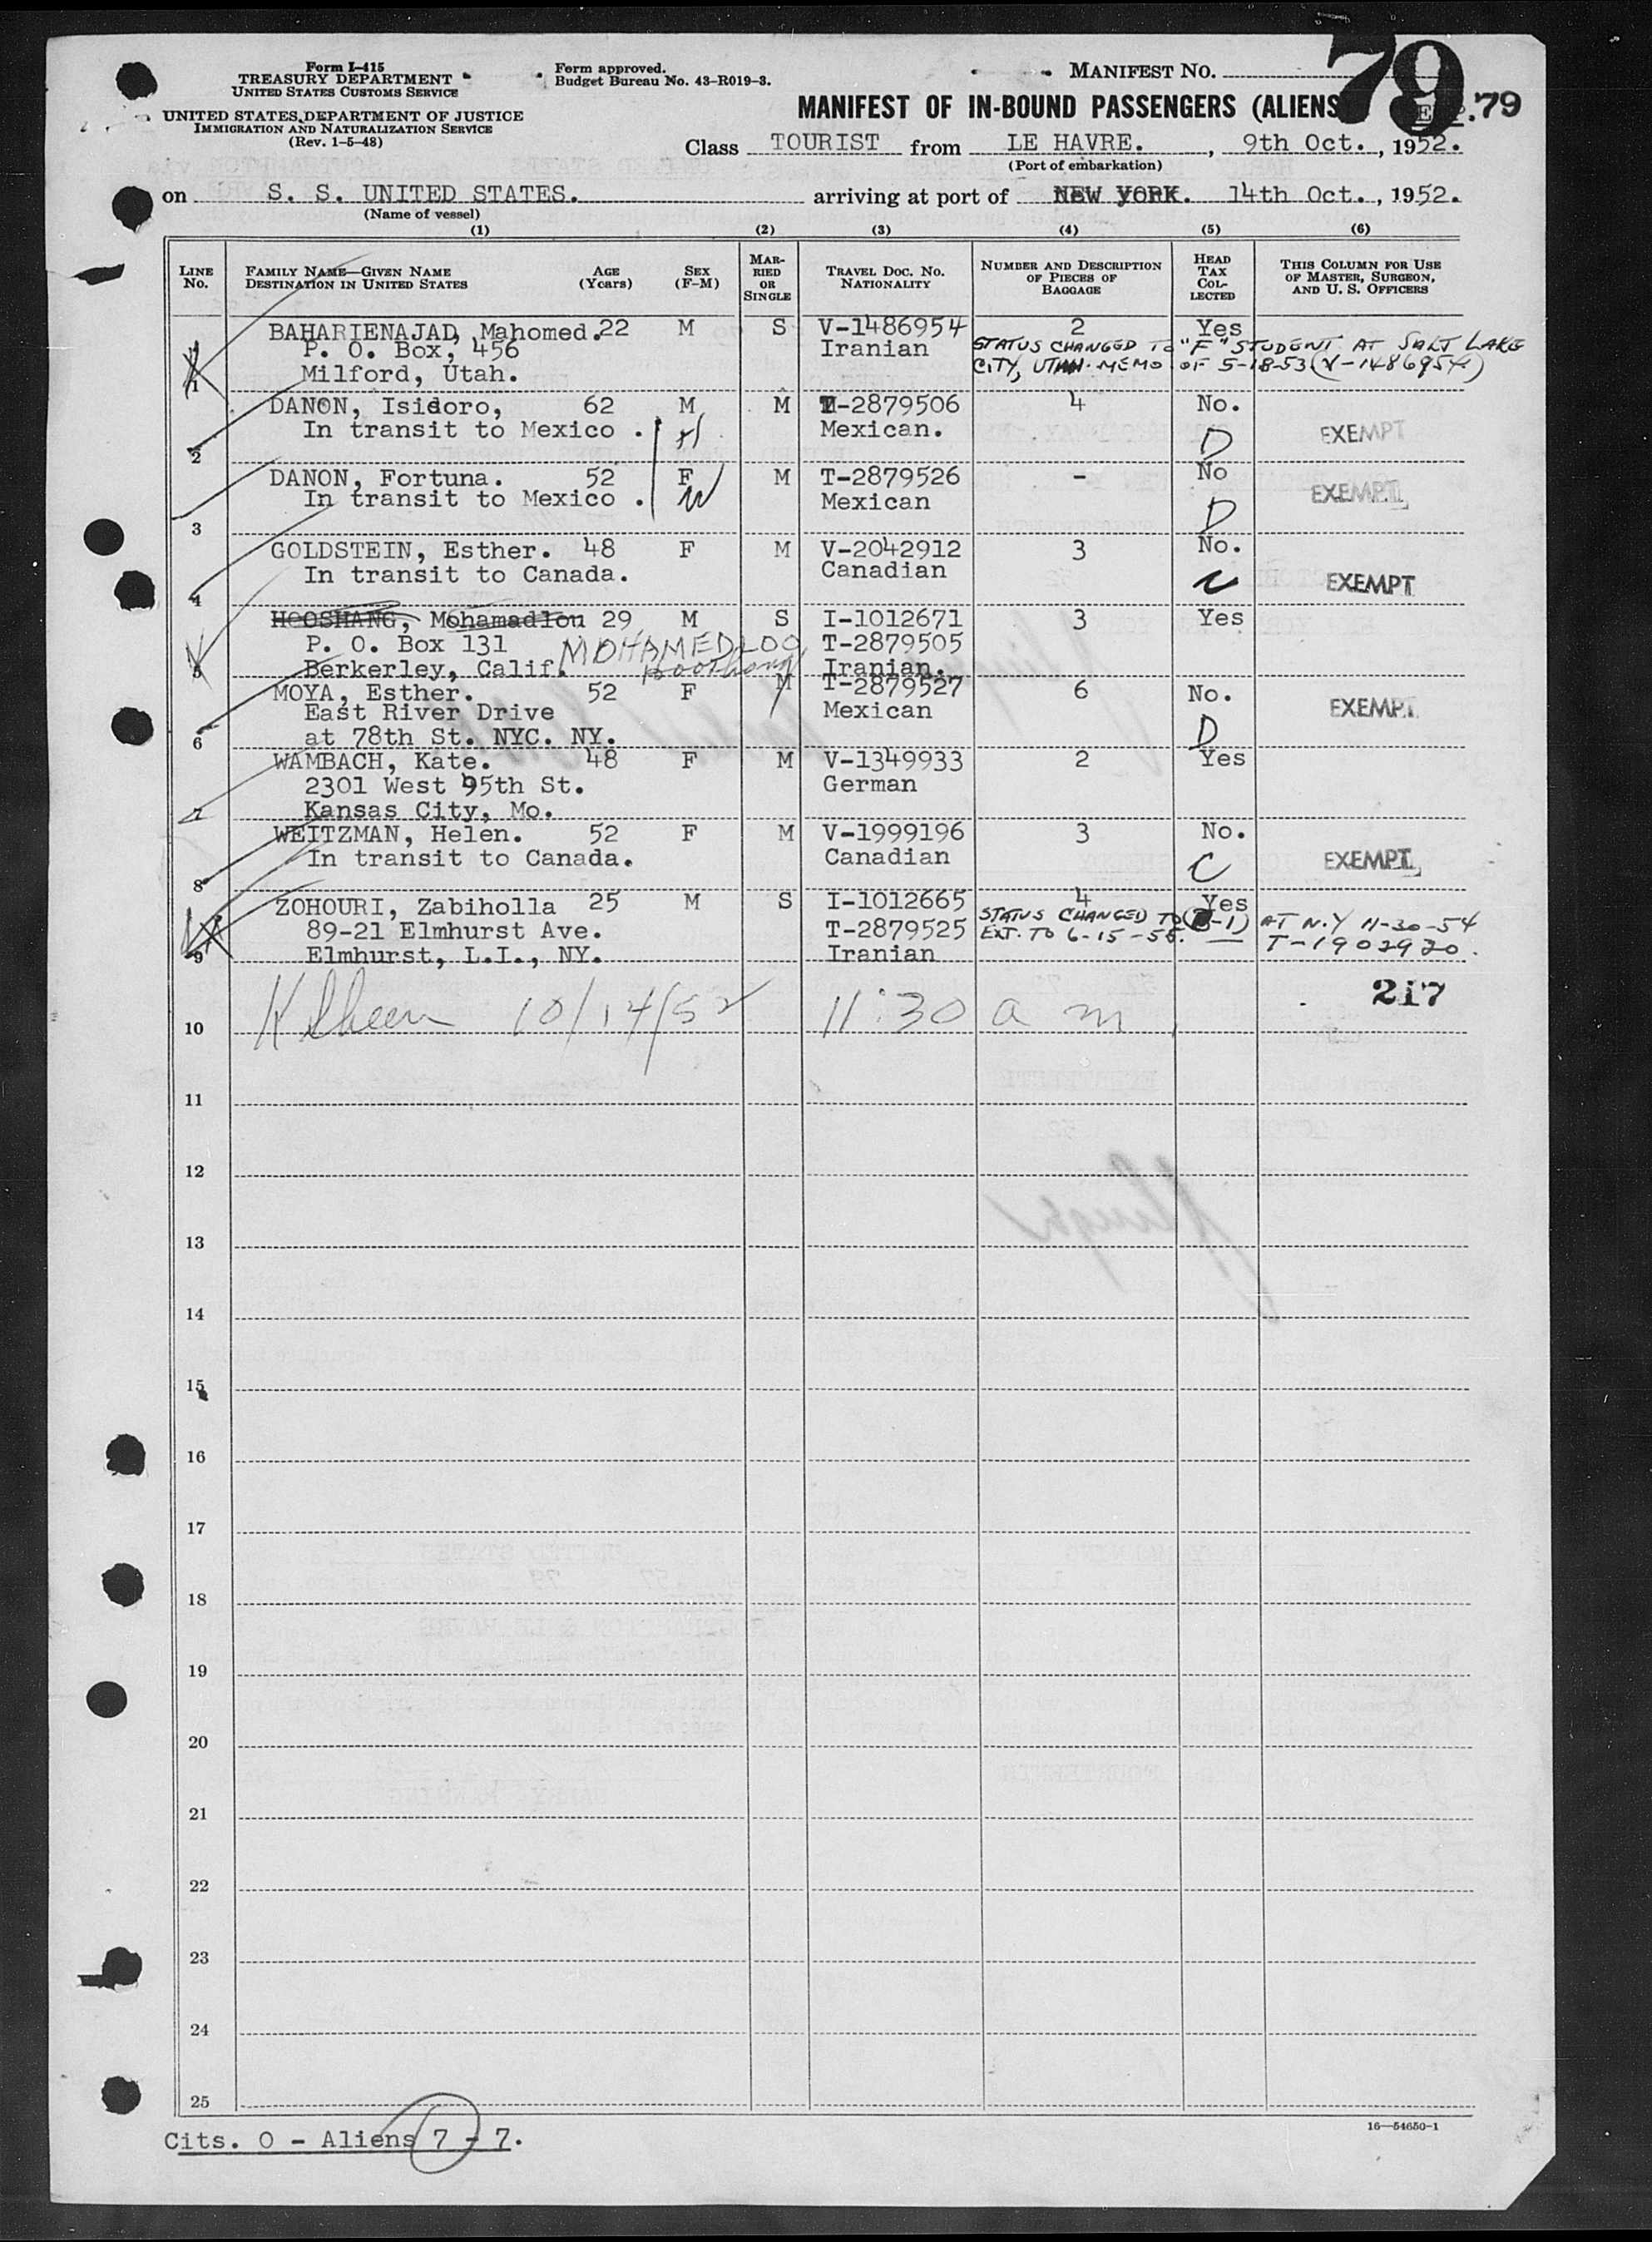 Form I-415
TREASURY DEPARTMENT
UNITED STATES CUSTOMS SERVICE
UNITED STATES DEPARTMENT OF JUSTICE
IMMIGRATION AND NATURALIZATION SERVICE
(Rev. 1-5-48)
Form approved.
Budget Bureau No. 43-R019-3.
MANIFEST NO.
79
MANIFEST OF IN-BOUND PASSENGERS (ALIENS
.79
Class TOURIST from LE HAVRE. , 9th Oct. , 1952.
(Port of embarkation)
on S. S. UNITED STATES. arriving at port of NEW YORK. 14th Oct. , 1952.
(Name of vessel)
(1) (2) (3) (4) (5) (6)
LINE NO.
FAMILY NAME—GIVEN NAME
DESTINATION IN UNITED STATES
AGE (Years)
SEX (F-M)
MAR-RIED OR SINGLE
TRAVEL DOC. NO. NATIONALITY
NUMBER AND DESCRIPTION OF PIECES OF BAGGAGE
HEAD TAX COL-LECTED
THIS COLUMN FOR USE OF MASTER, SURGEON, AND U. S. OFFICERS
BAHARIENAJAD, Mahomed. 22 M S V-1486954 2 Yes
P. O. Box, 456 Iranian STATUS CHANGED TO "F" STUDENT AT SALT LAKE
1 Milford, Utah. CITY, UTAH. MEMO OF 5-18-53 (V-1486954)
DANON, Isidoro, 62 M M T-2879506 4 No.
In transit to Mexico . Mexican. D EXEMPT
2
DANON, Fortuna. 52 F M T-2879526 - No
In transit to Mexico . Mexican D EXEMPT
3
GOLDSTEIN, Esther. 48 F M V-2042912 3 No.
In transit to Canada. Canadian C EXEMPT
4
HOOSHANG, Mohamadlou 29 M S I-1012671 3 Yes
P. O. Box 131 MOHAMEDLOO, T-2879505
5 Berkerley, Calif. Hooshang Iranian.
MOYA, Esther. 52 F M T-2879527 6 No.
East River Drive Mexican EXEMPT
6 at 78th St. NYC. NY. D
WAMBACH, Kate. 48 F M V-1349933 2 Yes
2301 West 95th St. German
7 Kansas City, Mo.
WEITZMAN, Helen. 52 F M V-1999196 3 No.
In transit to Canada. Canadian C EXEMPT
8
ZOHOURI, Zabiholla 25 M S I-1012665 4 Yes
89-21 Elmhurst Ave. T-2879525 STATUS CHANGED TO (B-1) AT N.Y 11-30-54
9 Elmhurst, L.I., NY. Iranian EXT. TO 6-15-55. T-1902920.
217
10 10/14/52 11:30 a m
11
12
13
14
15
16
17
18
19
20
21
22
23
24
25
16—54650-1
Cits. 0 - Aliens 7 - 7.